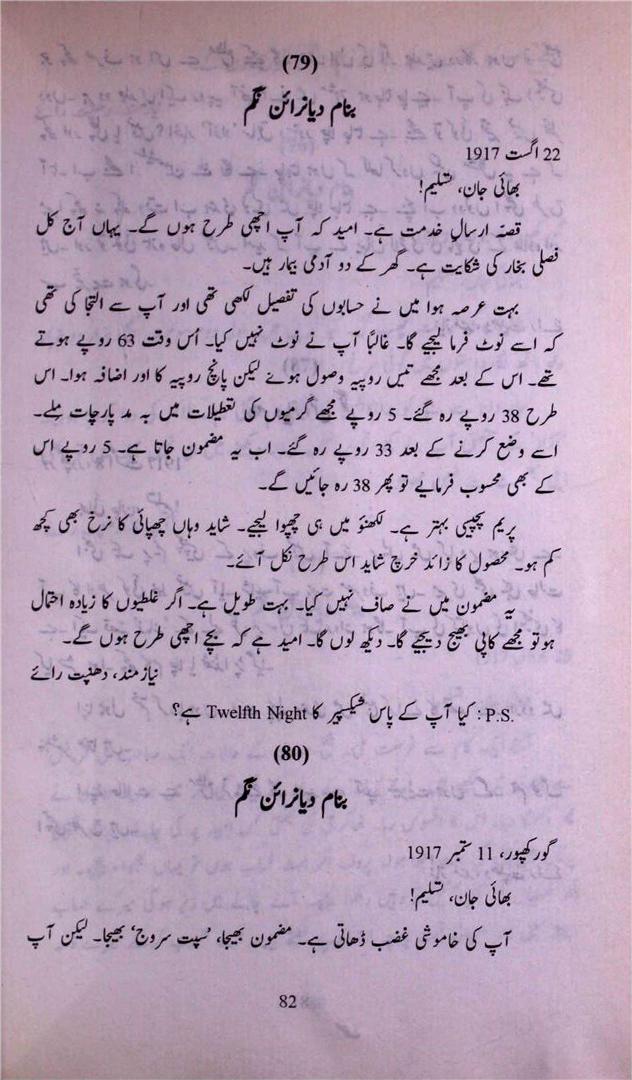 (79)
بنام دیانرائن نگم
22 اگست 1917
بھائی جان، تسلیم!
قصّہ ارسالِ خدمت ہے۔ امید کہ آپ اچھی طرح ہوں گے۔ یہاں آج کل
فصلی بخار کی شکایت ہے۔ گھر کے دو آدمی بیمار ہیں۔
بہت عرصہ ہوا میں نے حسابوں کی تفصیل لکھی تھی اور آپ سے التجا کی تھی
کہ اسے نوٹ فرما لیجیے گا۔ غالباً آپ نے نوٹ نہیں کیا۔ اُس وقت 63 روپے ہوتے
تھے۔ اس کے بعد مجھے تیس روپیہ وصول ہوئے لیکن پانچ روپیہ کا اور اضافہ ہوا۔ اس
طرح 38 روپے رہ گئے۔ 5 روپے مجھے گرمیوں کی تعطیلات میں بہ مد پارچات ملے۔
اسے وضع کرنے کے بعد 33 روپے رہ گئے۔ اب یہ مضمون جاتا ہے۔ 5 روپے اس
کے بھی محسوب فرمایے تو پھر 38 رہ جائیں گے۔
پریم پچیسی بہتر ہے۔ لکھنؤ میں ہی چھپوا لیجیے۔ شاید وہاں چھپائی کا نرخ بھی کچھ
کم ہو۔ محصول کا زائد خرچ شاید اس طرح نکل آئے۔
یہ مضمون میں نے صاف نہیں کیا۔ بہت طویل ہے۔ اگر غلطیوں کا زیادہ احتمال
ہو تو مجھے کاپی بھیج دیجیے گا۔ دیکھ لوں گا۔ امید ہے کہ بچے اچھی طرح ہوں گے۔
نیازمند، دھنپت رائے
P.S.: کیا آپ کے پاس شیکسپیر کا Twelfth Night ہے؟
(80)
بنام دیانرائن نگم
گورکھپور، 11 ستمبر 1917
بھائی جان، تسلیم!
آپ کی خاموشی غضب ڈھاتی ہے۔ مضمون بھیجا، ’سپت سروج‘ بھیجا۔ لیکن آپ
82